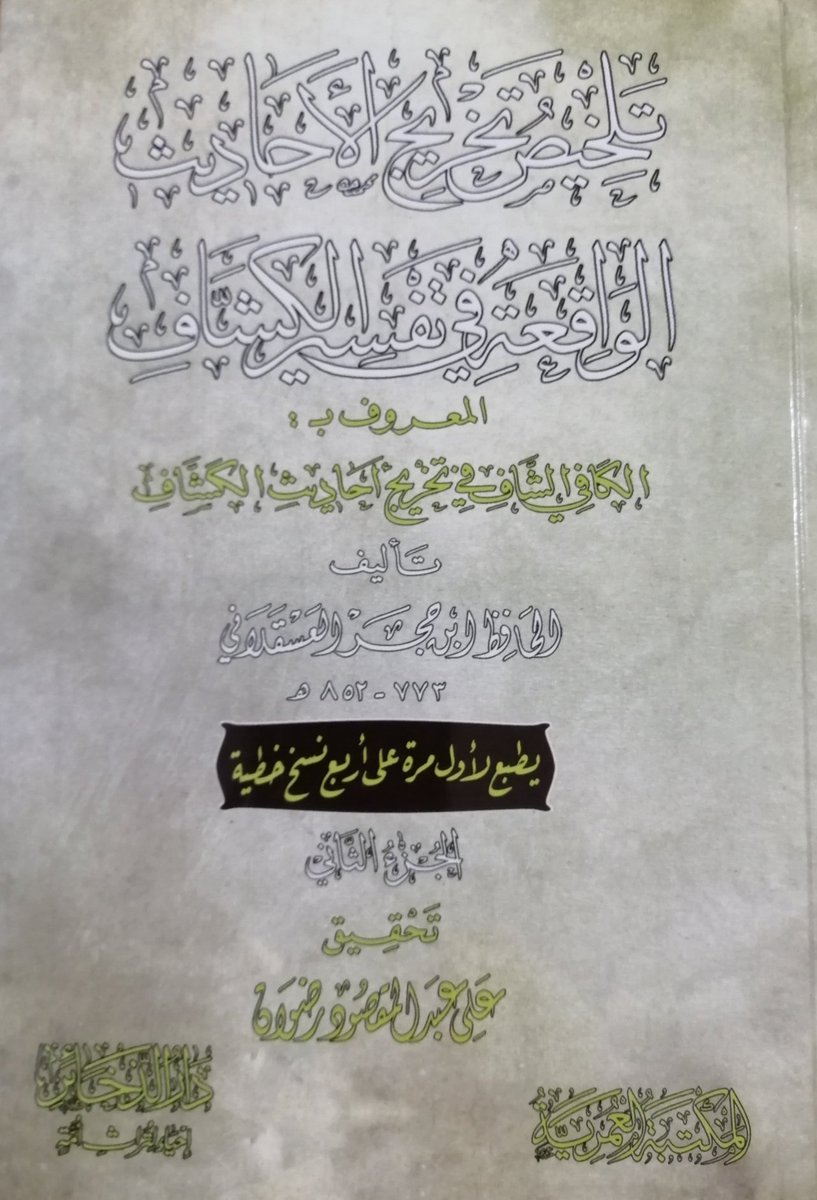 تلخيص تخريج الأحاديث
الواقعة في تفسير الكشاف
المعروف بـ :
الكافي الشاف في تخريج أحاديث الكشاف
تأليف
الحافظ ابن حجر العسقلاني
٧٧٣ - ٨٥٢ هـ
يطبع لأول مرة على أربع نسخ خطية
الجزء الثاني
تحقيق
علي عبد المقصود رضوان
المكتبة العمرية
دار الذخائر